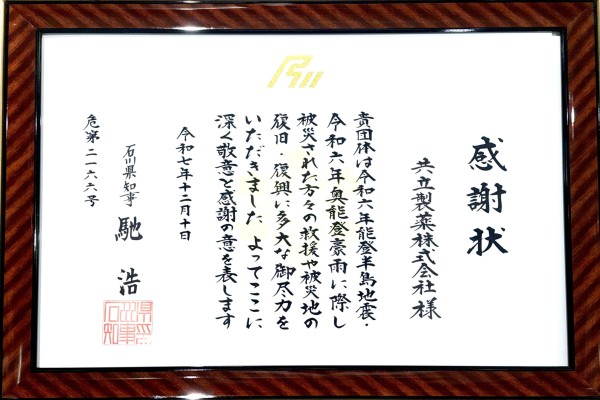 感謝状
共立製薬株式会社様
貴団体は令和六年能登半島地震・
令和六年奥能登豪雨に際し
被災された方々の救援や被災地の
復旧・復興に多大な御尽力を
いただきました よってここに
深く敬意と感謝の意を表します
令和七年十二月十日
石川県知事 馳 浩
危第二一六六号
石川県知事